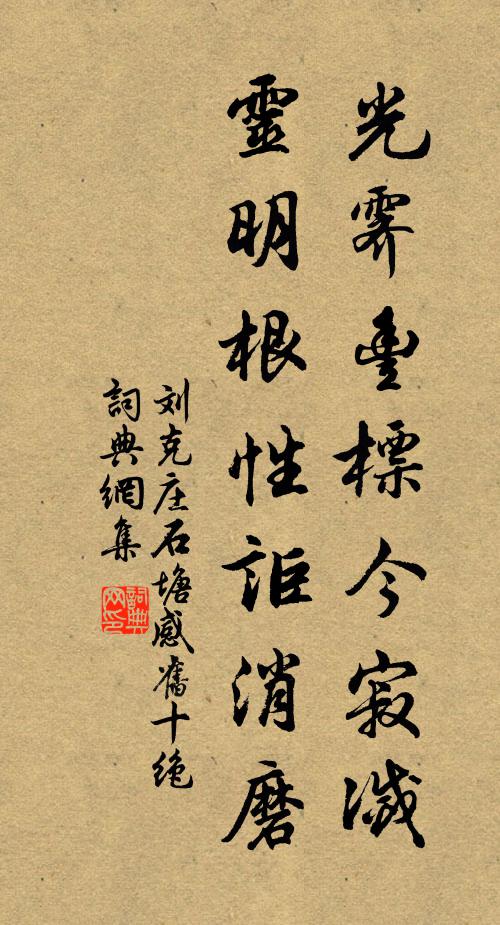 光霁豊標今寂滅
靈明根性詎消磨
刘克庄石塘感舊十绝
詞典網集
詞典網印